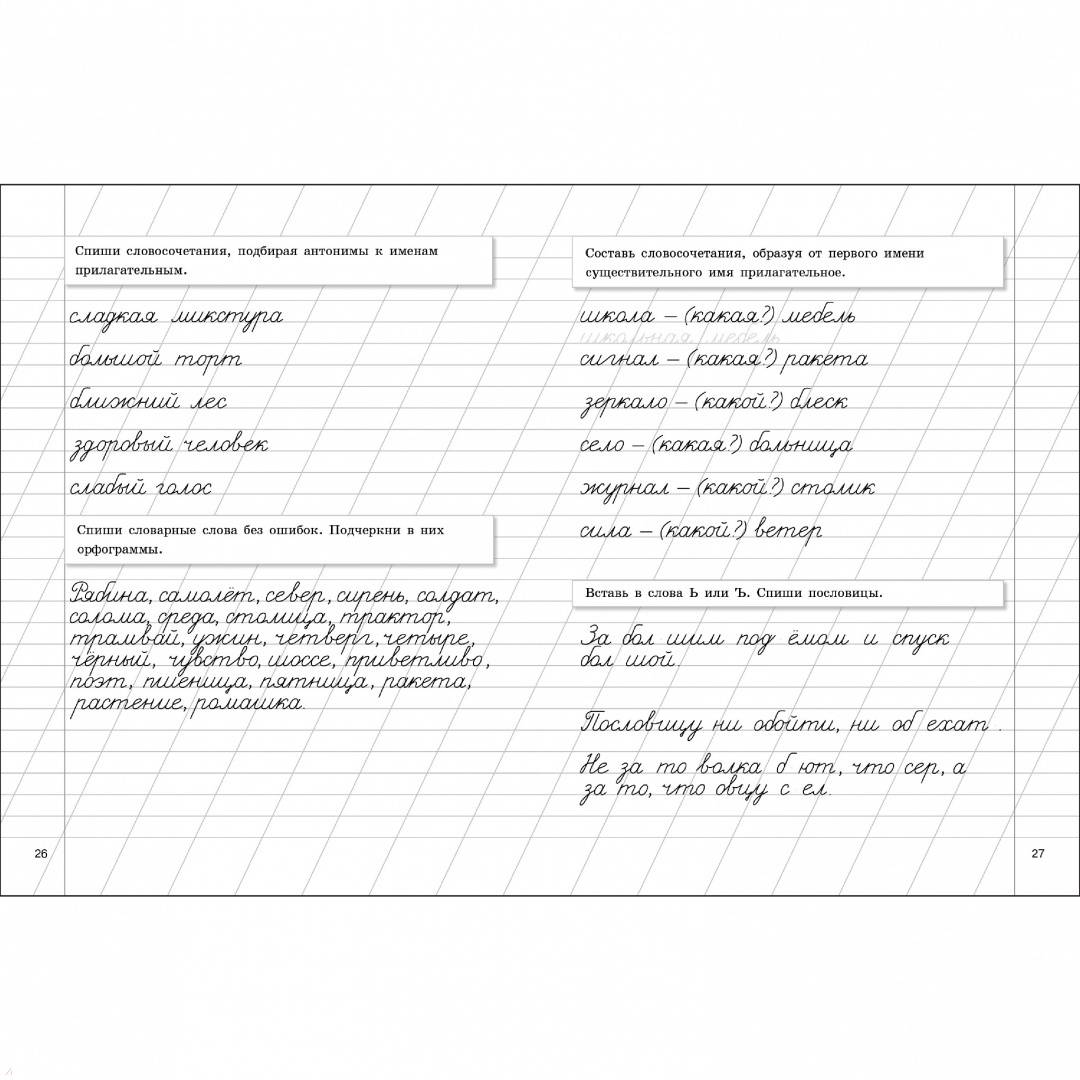 Спиши словосочетания, подбирая антонимы к именам
прилагательным.
сладкая микстура
большой торт
ближний лес
здоровый человек
слабый голос
Спиши словарные слова без ошибок. Подчеркни в них
орфограммы.
Рябина, самолёт, север, сирень, солдат,
солома, среда, столица, трактор,
трамвай, ужин, четверг, четыре,
чёрный, чувство, шоссе, приветливо,
поэт, пшеница, пятница, ракета,
растение, ромашка.
26
Составь словосочетания, образуя от первого имени
существительного имя прилагательное.
школа – (какая?) мебель
школьная мебель
сигнал – (какая?) ракета
зеркало – (какой?) блеск
село – (какая?) больница
журнал – (какой?) столик
сила – (какой?) ветер
Вставь в слова Ь или Ъ. Спиши пословицы.
За бол шим под ёмом и спуск
бол шой.
Пословицу ни обойти, ни об ехат .
Не за то волка б ют, что сер, а
за то, что овцу с ел.
27